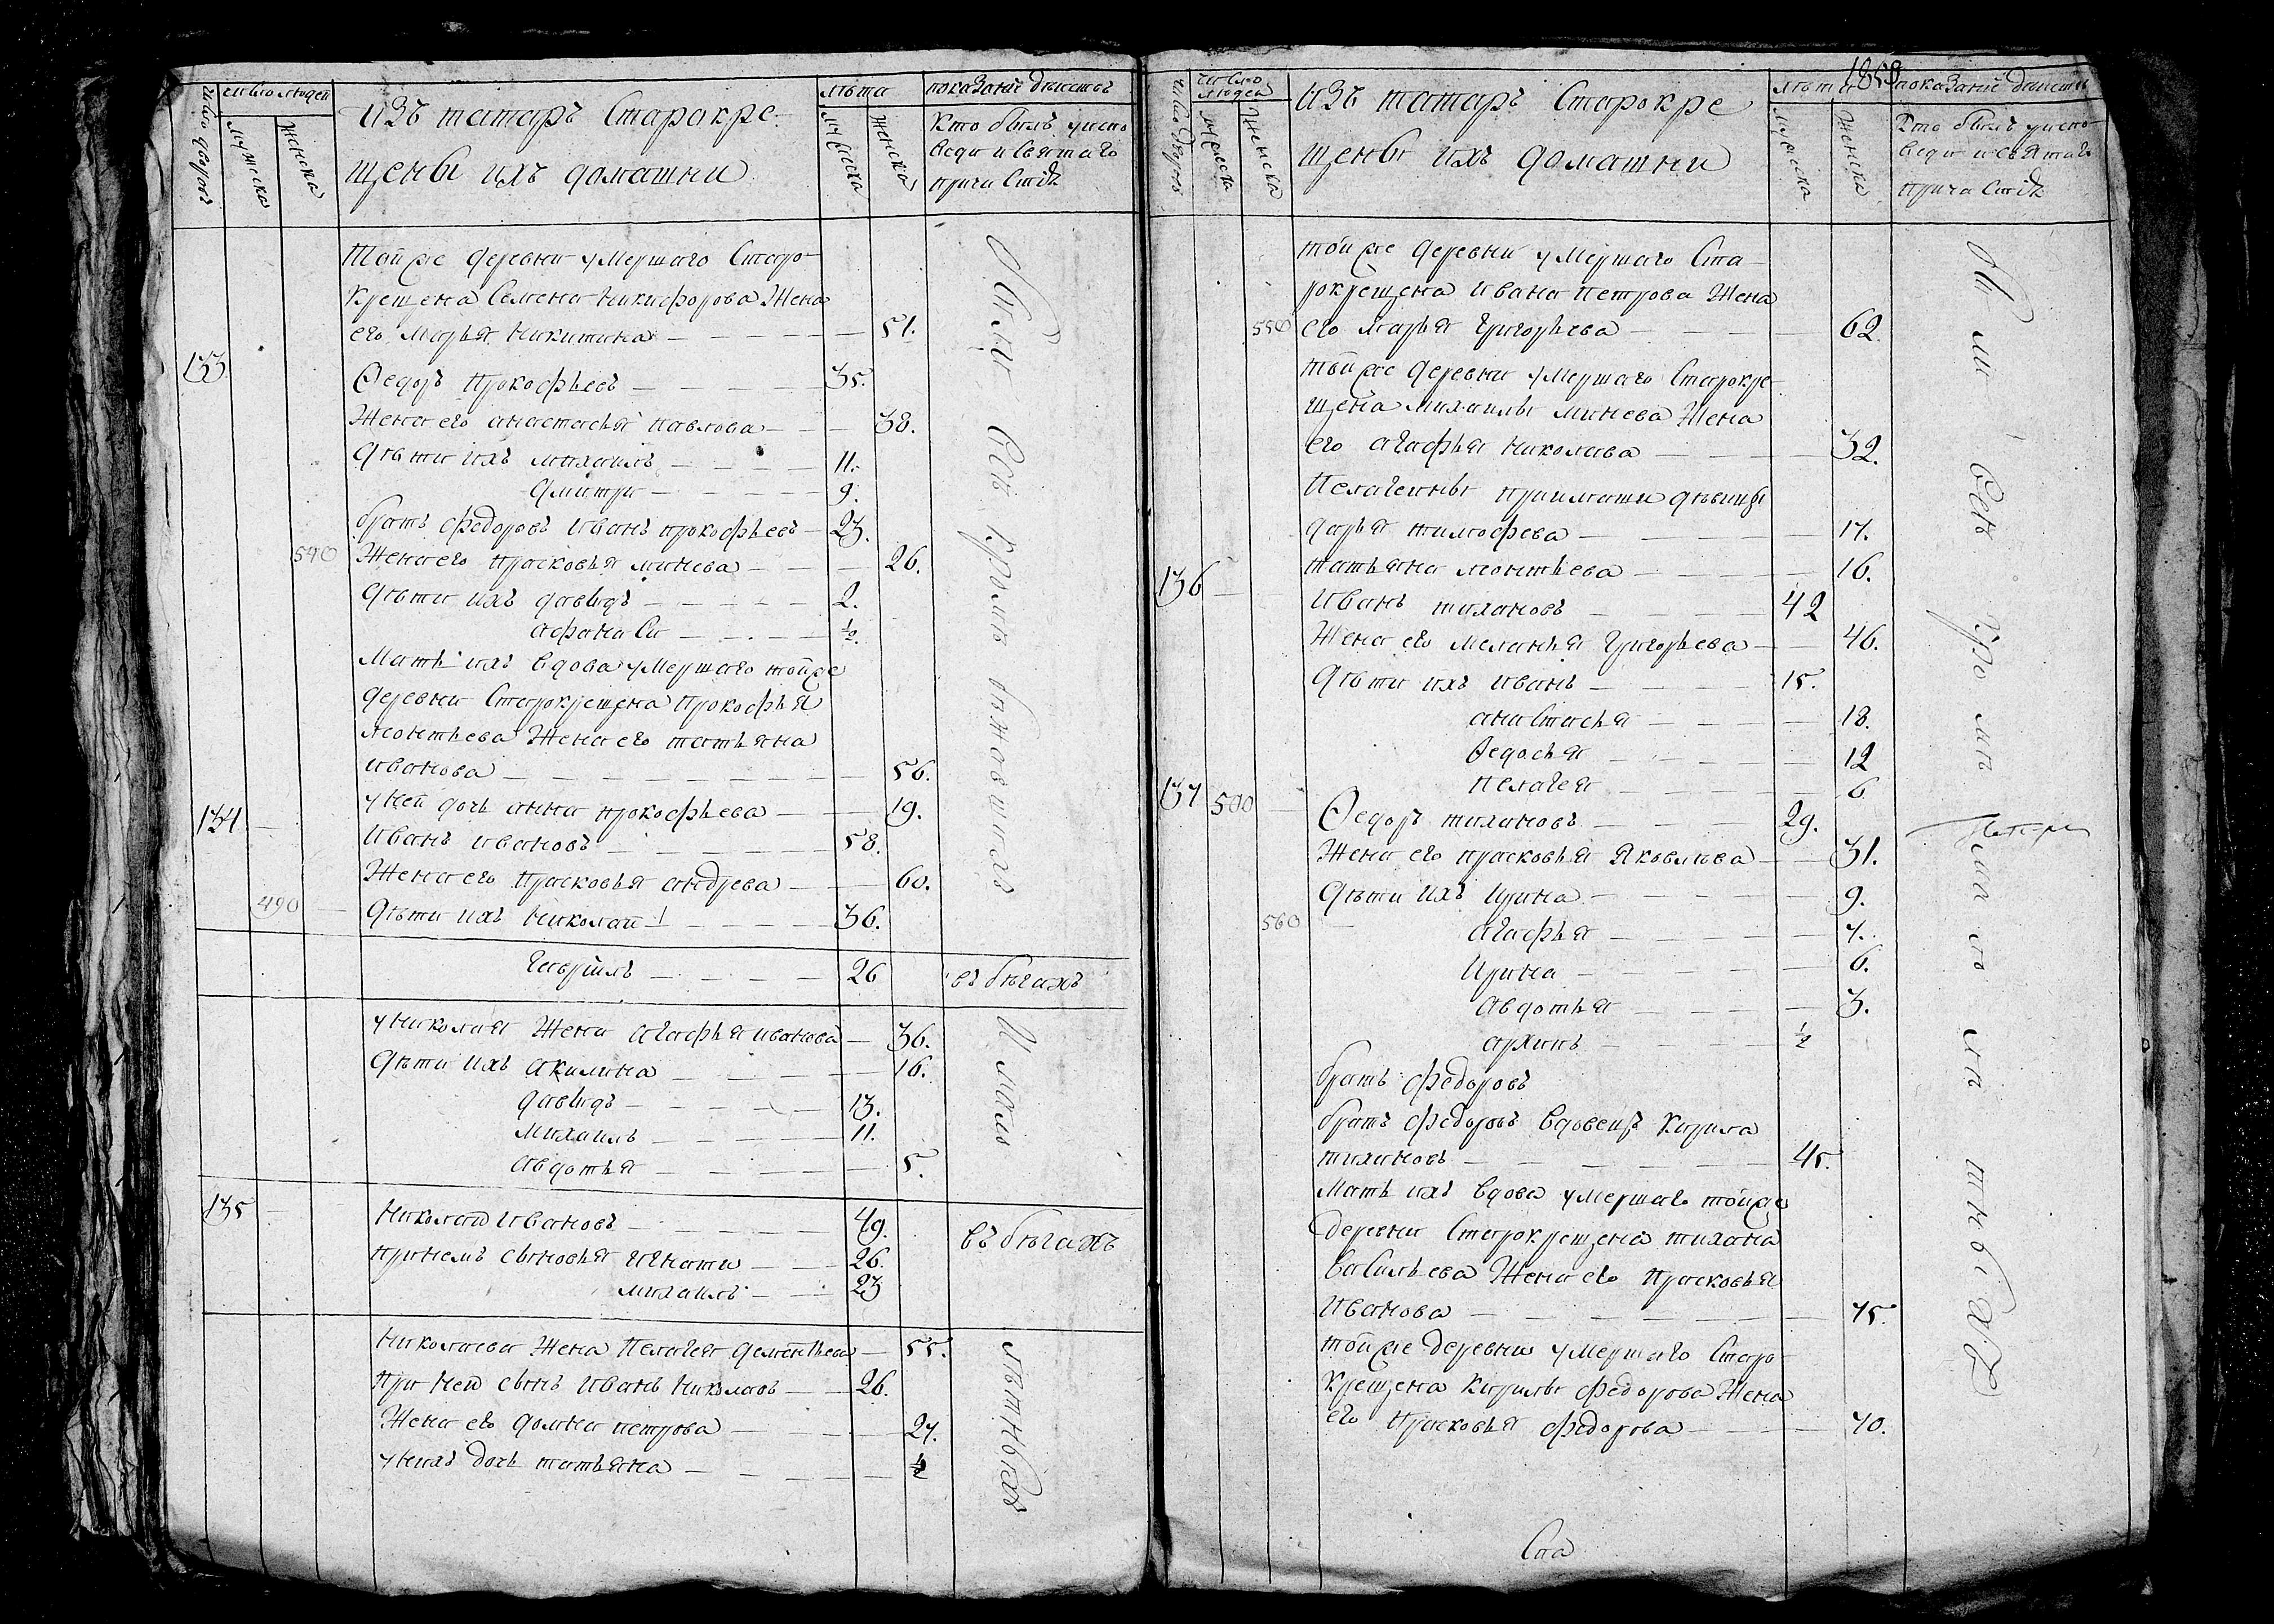 число дворовъ
число людей
мужска
женска
изъ татаръ Старокре-
щены ихъ домашни
лѣта
мужеска
женска
показанiе дѣйства
Кто былъ у испо
веди и Святаго
причаСтiя
Тойже деревни умершаго Старо-
крещена Семена Никифорова Жена
его Марья Никитина — 51.
133
Ѳедоръ Прокофьевъ — 35.
Жена его анастасья павлова — 38.
Дѣти ихъ михаилъ — 11.
дмитри — 9.
братъ федоровъ Иванъ прокофьевъ — 23.
540 Жена его прасковья минева — 26.
Дѣти ихъ давыдъ — 2.
афанаСи — ½.
Мать ихъ вдова умершаго тойже
деревни Старокрещена Прокофья
леонтьева Жена его татьяна
иванова — 56.
у ней дочь анна прокофьева — 19.
134
Иванъ ивановъ — 58.
Жена его прасковья андрева — 60.
490 Дѣти ихъ Николай — 36.
Были Всѣ кроме бежавшихъ
Гаврiилъ — 26 въ бѣгахъ
у николая Жена агафья иванова — 36.
Дѣти ихъ акилина — 16.
давыдъ — 13.
михаилъ — 11.
авдотья — 5.
И мало
135
Николай Ивановъ — 49. въ бѣгахъ
при немъ сыновья игнати — 26.
михаилъ — 23
Николаева Жена Пелагея дементьева — 55.
При ней сынъ иванъ николаевъ — 26.
Жена его домна петрова — 27.
у нихъ дочь татьяна — ½
лѣтныхъ
1858
число дворовъ
число
людей
мужеска
Женска
изъ татаръ Старокре
щены ихъ домашни
лѣта
мужеска
женска
показанiе дѣйства
Кто былъ у испо-
веди и святаго
причаСтiя
тойже деревни умершаго Ста-
рокрещена ивана петрова Жена
550 его марья григорьева — 62.
тойже деревни умершаго Старокре-
щена михаилы минева Жена
его агафья николаева — 32.
Пелагеины приимыши дѣвицы
дарья тимофева — 17.
татьяна леонтьева — 16.
136
Иванъ тихановъ — 42
Жена его меланья григорьева — 46.
Дѣти ихъ иванъ — 15.
анаСтасья — 18.
Ѳедосья — 12
пелагея — 6
137 500
Ѳедоръ тихановъ — 29.
Жена его прасковья Яковлева — 31.
Дѣти ихъ Ирина — 9.
560 агафья — 7.
Ирина — 6.
авдотья — 3.
архипъ — ½
братъ федоровъ
братъ федоровъ вдовецъ Кирила
тихановъ — 45.
Мать ихъ вдова умершаго тойже
деревни Старокрещена тихана
васильева Жена его Прасковья
Иванова — 75.
тойже деревни умершаго Старо-
крещена кирилы федорова Жена
его Прасковья федорова — 70.
Были Всѣ кроме мало лѣтныхъ
Ста